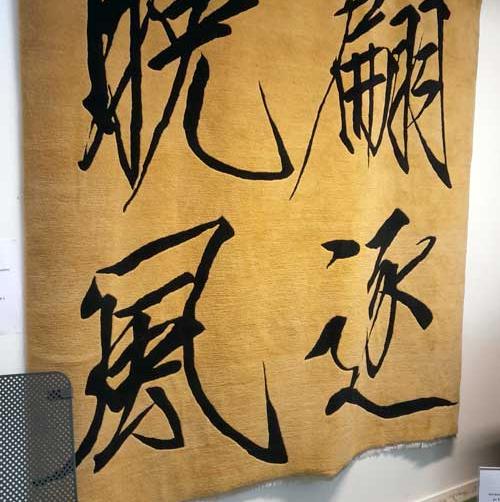 翩逐
晚風